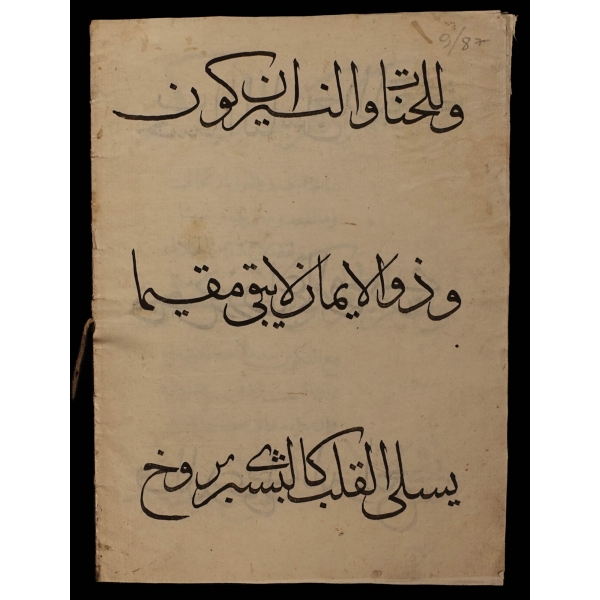 وللجنات والنيران كون
وذو الايمان لا يبقى مقيما
يسلى القلب كالبشرى بروح